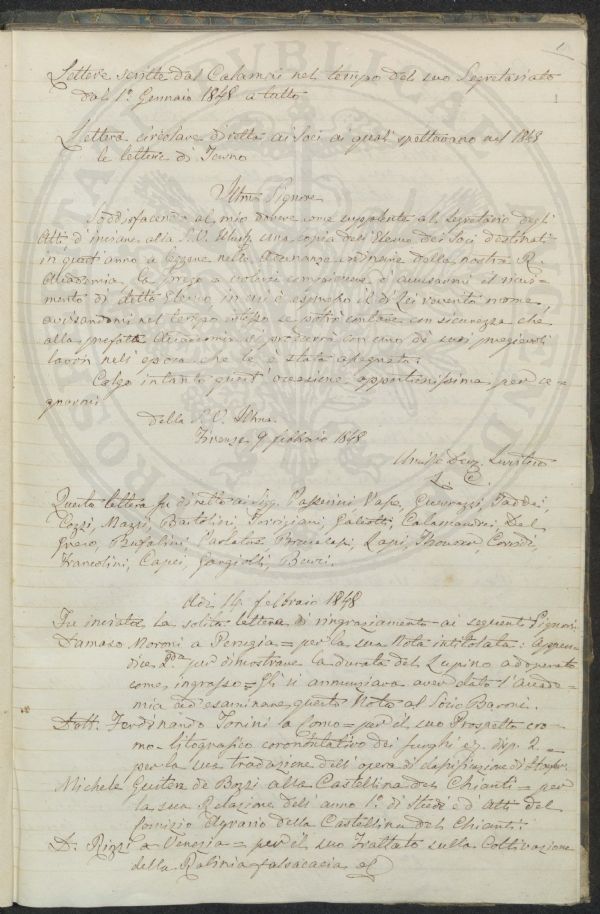 Lettere scritte dal Calamai nel tempo del suo Segretariato
dal 1º Gennaio 1848 a tutto
Lettera circolare diretta ai Soci ai quali spettavano nel 1848
le letture di Turno
Illmo Signore
Soddisfacendo al mio dovere come supplente al Segretario degli
Atti, d'inviare alla S.V. Illustr. una copia dell'Elenco dei Soci destinati
in quest'anno a leggere nelle Adunanze ordinarie della nostra R.
Accademia, la prego a volersi compiacere d'avvisarmi il ricevi=
mento di detto Elenco in cui è espresso il di Lei riverito nome,
avvisandomi nel tempo istesso se potrò contare con sicurezza che
alla prefata Accademia si procurerà con uno de' suoi pregievoli
lavori nell'epoca che le è stata assegnata.
Colgo intanto quest'occasione opportunissima per se=
gnarmi
Della S.V. Illma
Firenze 9 febbraio 1848
Questa lettera fu diretta ai Sig. Passerini, Vaſe, Guerrazzi, Taddei,
Cozzi, Mazzi, Bartolini, Torrigiani, Galeotti, Calamandrei, Del
Greco, Bufalini, Lapi, Thouar, Corridi,
Francolini, Capei, Gargiolli, Bucci.
Adì 14 febbraio 1848
Fu inviata la solita lettera di ringraziamento ai seguenti Signori
Damaso Moroni a Perugia = per la sua Nota intitolata: Appen=
dice 2da per dimostrare la durata del Lupino adoperato
come ingrasso = Gli si annunziava aver dato l'Accade=
mia ad esaminare questa Nota al Socio Baroni.
Dott. Ferdinando Tonini a Como = per il suo Prospetto cro=
mo-litografico dei funghi e disp. 2 =
per la sua traduzione dell'opera di classificazione di
Michele de Bozzi alla Castellina del Chianti = per
la sua Relazione dell'anno 1º di Studi ed Atti del
Comizio Agrario della Castellina del Chianti.
D. Rizzi a Venezia = per il suo Trattato sulla Coltivazione
della Robinia falsacacia